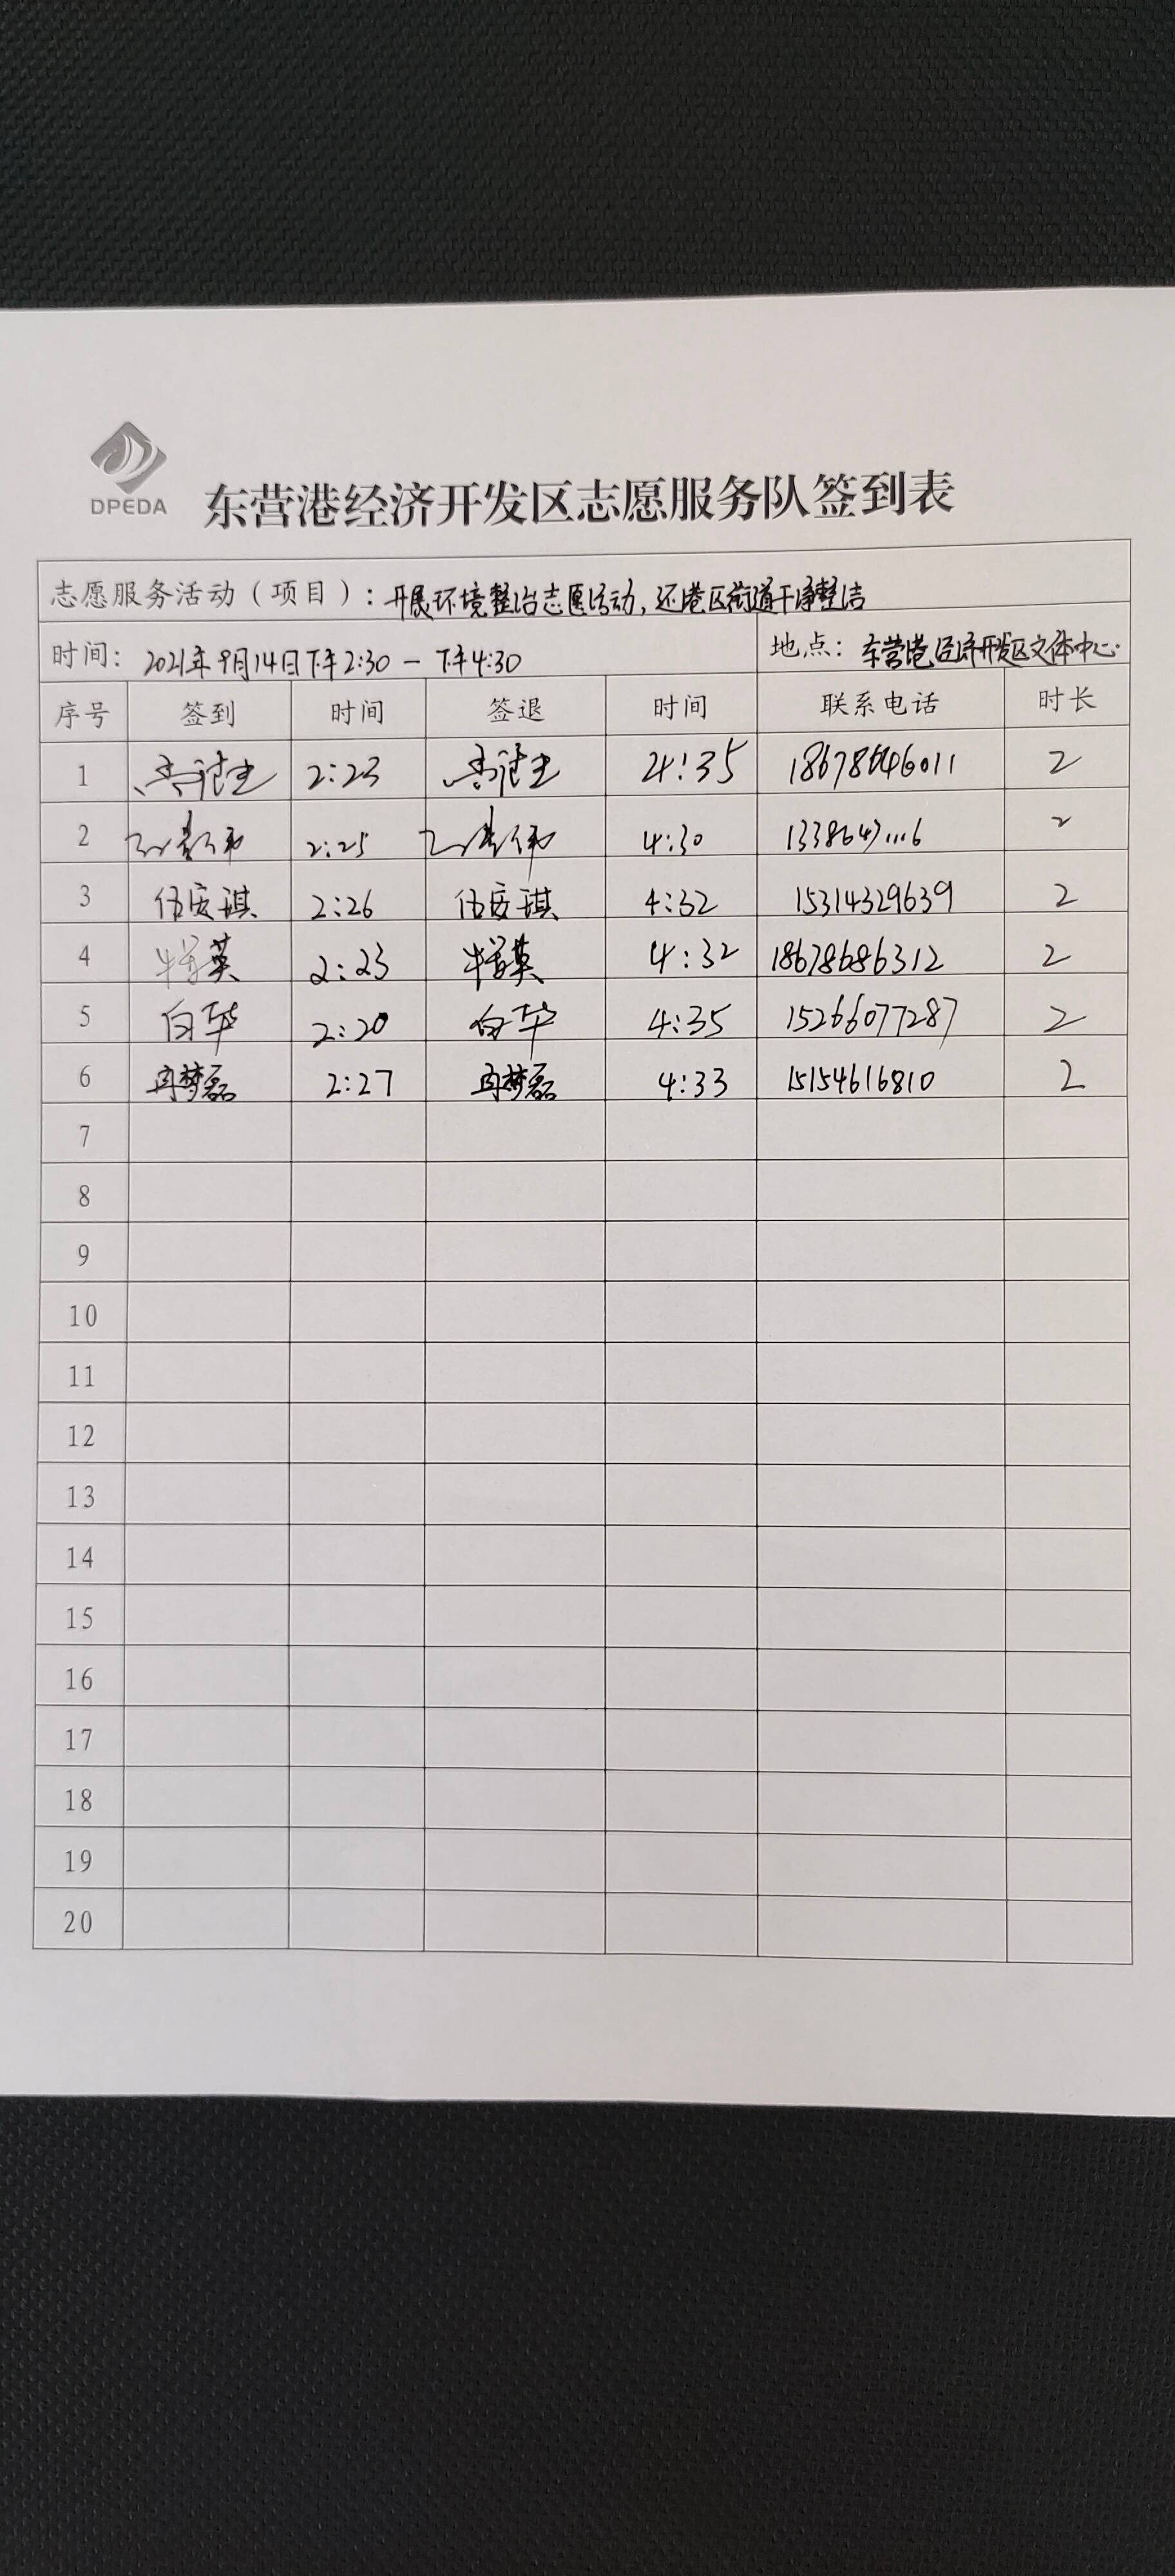 DPEDA
东营港经济开发区志愿服务队签到表
志愿服务活动（项目）：开展环境整治志愿活动，还港区街道干净整洁
时间：2021年9月14日下午2:30－下午4:30 地点：东营港经济开发区文体中心
序号 签到 时间 签退 时间 联系电话 时长
1 2:23 4:35 18678646011 2
2 2:25 4:30 2
3 伍安琪 2:26 伍安琪 4:32 15314329639 2
4 2:23 4:32 18678686312 2
5 白华 2:20 白华 4:35 15266077287 2
6 冉梦磊 2:27 冉梦磊 4:33 15154616810 2
7
8
9
10
11
12
13
14
15
16
17
18
19
20